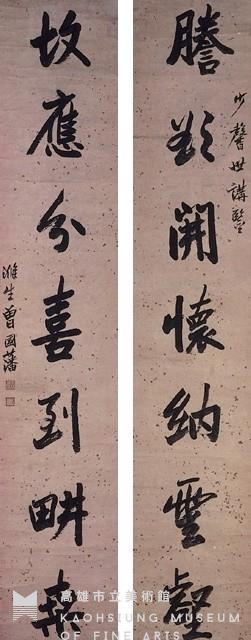 少馨世講鑒
謄欲開懷納雲壑
故應分喜到畊桒
滌生曾國藩
高雄市立美術館
KAOHSIUNG MUSEUM
OF FINE ARTS